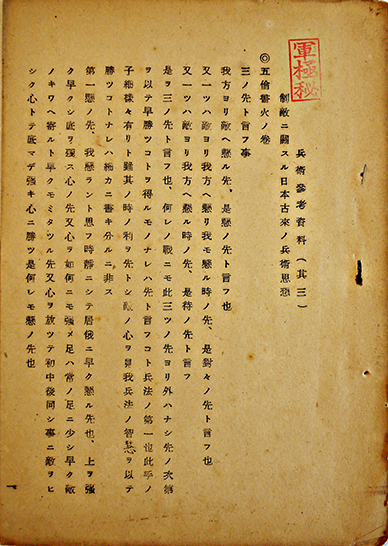 軍極秘
兵術参考資料(其三)
制敵ニ関スル日本古来ノ兵術思想
◎五倫書火ノ巻
三ノ先ト言フ事
我方ヨリ敵ヘ懸ル先、是懸ノ先ト言フ也
又一ツハ敵ヨリ我方ヘ懸リ我モ懸ル時ノ先、是對々ノ先ト言フ也
又一ツハ敵ヨリ我方ヘ懸ル時ノ先、是待ノ先ト言フ
是ヲ三ノ先ト言フ也、何レノ戰ニモ此三ツノ先ヨリ外ハナシ先ノ次第
ヲ以テ早勝ツコトヲ得ルモノナレハ先ト言フコト兵法ノ第一也此乎ノ
子細様々有リト雖其ノ時ノ利ヲ先トシ敵ノ心ヲ見我兵法ノ智慧ヲ以テ
勝ツコトナレハ細カニ書キ分ルニ非ス
第一懸ノ先、我懸ラント思フ時靜ニシテ居俄ニ早ク懸ル先也、上ヲ強
ク早クシ底ヲ残ス心ノ先又心ヲ如何ニモ強メ足ハ常ノ足ニ少シ早ク敵
ノキワヘ寄ルト早クモミタツル先又心ヲ放ツテ初中後同シ事ニ敵ヲヒ
シク心トテ底マデ強キ心ニ勝ツ是何レモ懸ノ先也